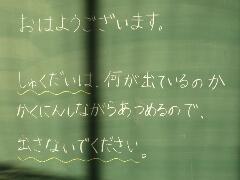 おはようございます。
しゅくだいは、何が出ているのか
かくにんしながらあつめるので、
出さないでください。